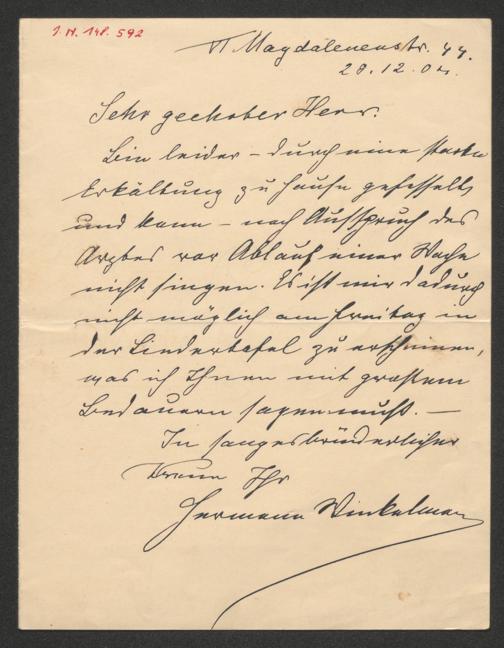 I.N. 148.592
VI Magdalenenstr. 44.
28.12.04.
Sehr geehrter Herr.
Bin leider – durch eine starke
Erkältung zu Hause gefesselt
und kann – nach Ausspruch des
Arztes vor Ablauf einer Woche
nicht singen. Es ist mir dadurch
nicht möglich am Freitag in
der Liedertafel zu erscheinen,
was ich Ihnen mit großem
Bedauern sagen muß. –
In sangesbrüderlicher
Treue Ihr
Hermann Winkelmann